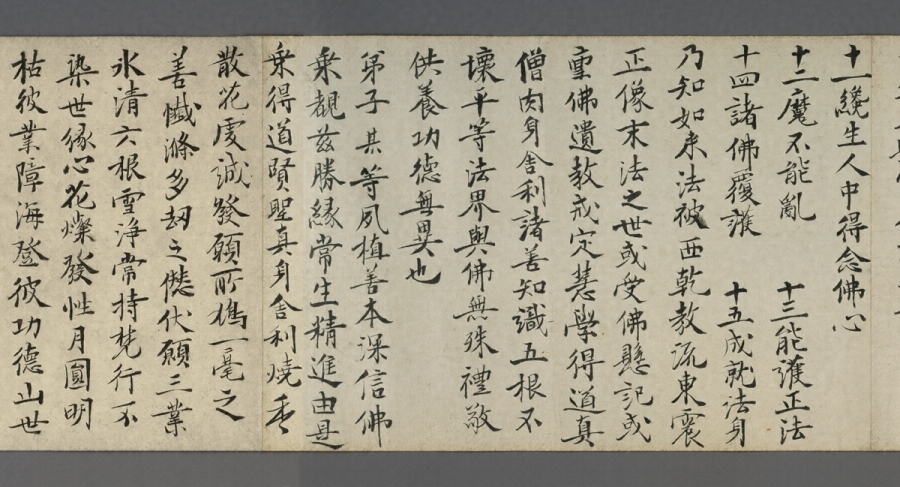 十一纔生人中得念佛心
十二魔不能亂 十三能護正法
十四諸佛覆護 十五成就法身
乃知如来法被西乾教流東震
正像末法之世或受佛懸記或
重佛遺教戒定慧學得道真
僧肉身舍利諸善知識五根不
壞平等法界與佛無殊禮敬
供養功德無異也
弟子某等夙植善本深信佛
乘覩茲勝緣常生精進由是
乘得道賢聖真身舍利燒香
散花虔誠發願所獲一毫之
善懺滌多刧之愆伏願三業
氷清六根雪淨常持梵行不
染世緣心花燦發性月圓明
枯彼業障海登彼功德山世